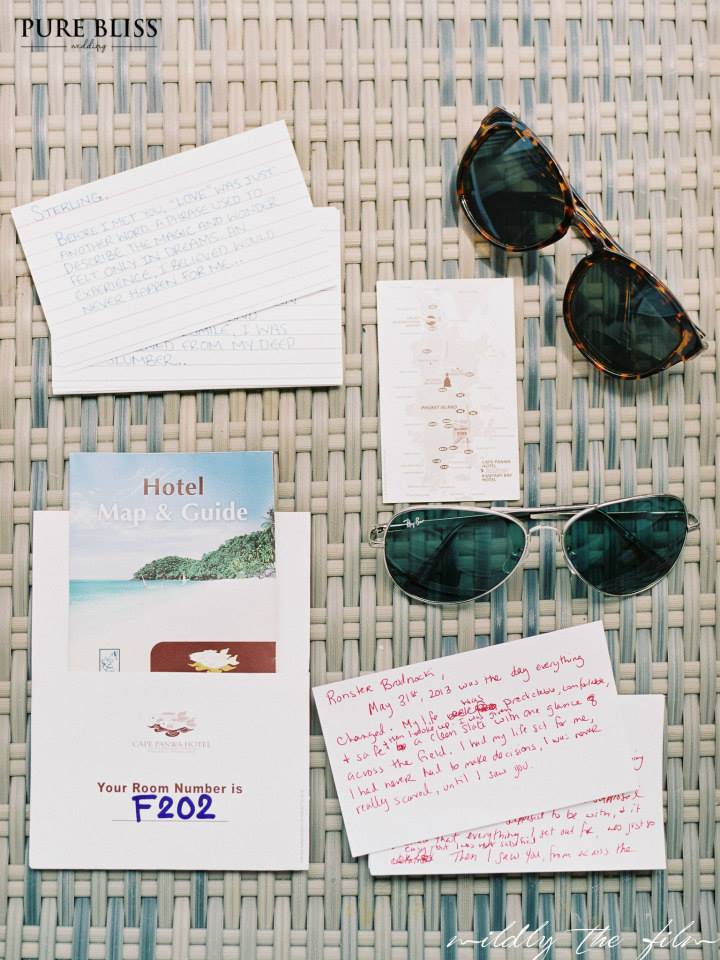 PURE BLISS
wedding
STERLING,
BEFORE I MET YOU, "LOVE" WAS JUST
ANOTHER WORD. A PHRASE USED TO
DESCRIBE THE MAGIC AND WONDER
FELT ONLY IN DREAMS. AN
EXPERIENCE, I BELIEVED WOULD
NEVER HAPPEN FOR ME...
SMILE, I WAS
FROM MY DEEP
SLUMBER..
PHUKET ISLAND
CAPE PANWA
HOTEL
KANTARY BAY
HOTEL
Hotel
Map & Guide
Ray-Ban
CAPE PANWA HOTEL
Your Room Number is
F202
Ronster Brodnack,
May 31st, 2013 was the day everything
changed. My life was predictable, comfortable,
+ safe then I woke up. I was given a clean slate with one glance
across the field. I had my life set for me,
I had never had to make decisions, I was never
really scared, until I saw you.
supposed to be with, & it
that everything I set out for, was just so
easy but I was not satisfied
Then I saw you, from across the
mildly the film